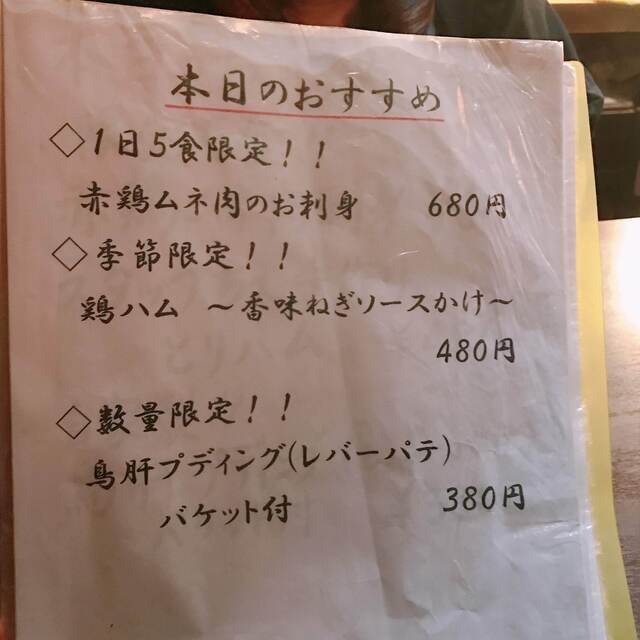 本日のおすすめ
◇1日5食限定！！
赤鶏ムネ肉のお刺身 680円
◇季節限定！！
鶏ハム ～香味ねぎソースかけ～
480円
◇数量限定！！
鳥肝プディング(レバーパテ)
バケット付 380円